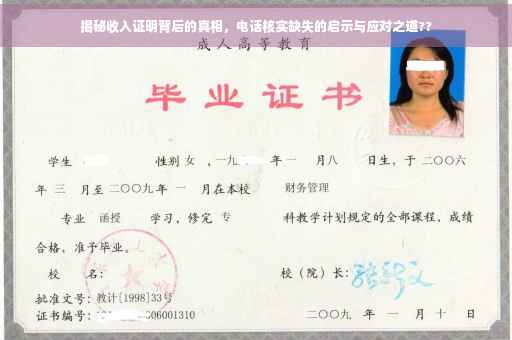 揭秘收入证明背后的真相，电话核实缺失的启示与应对之道??
成人高等教育
毕业证书
学生 性别 女 ，一九 年 一 月八 日生，于 二〇〇六
年 三 月至 二〇〇九 年 一 月在本校 财务管理
专业 函授 学习，修完 专 科教学计划规定的全部课程，成绩
合格，准予毕业。
校 名： 校（院）长：
批准文号：教计[1998]33号
证书编号： 06001310 二〇〇九 年 一 月 十 日